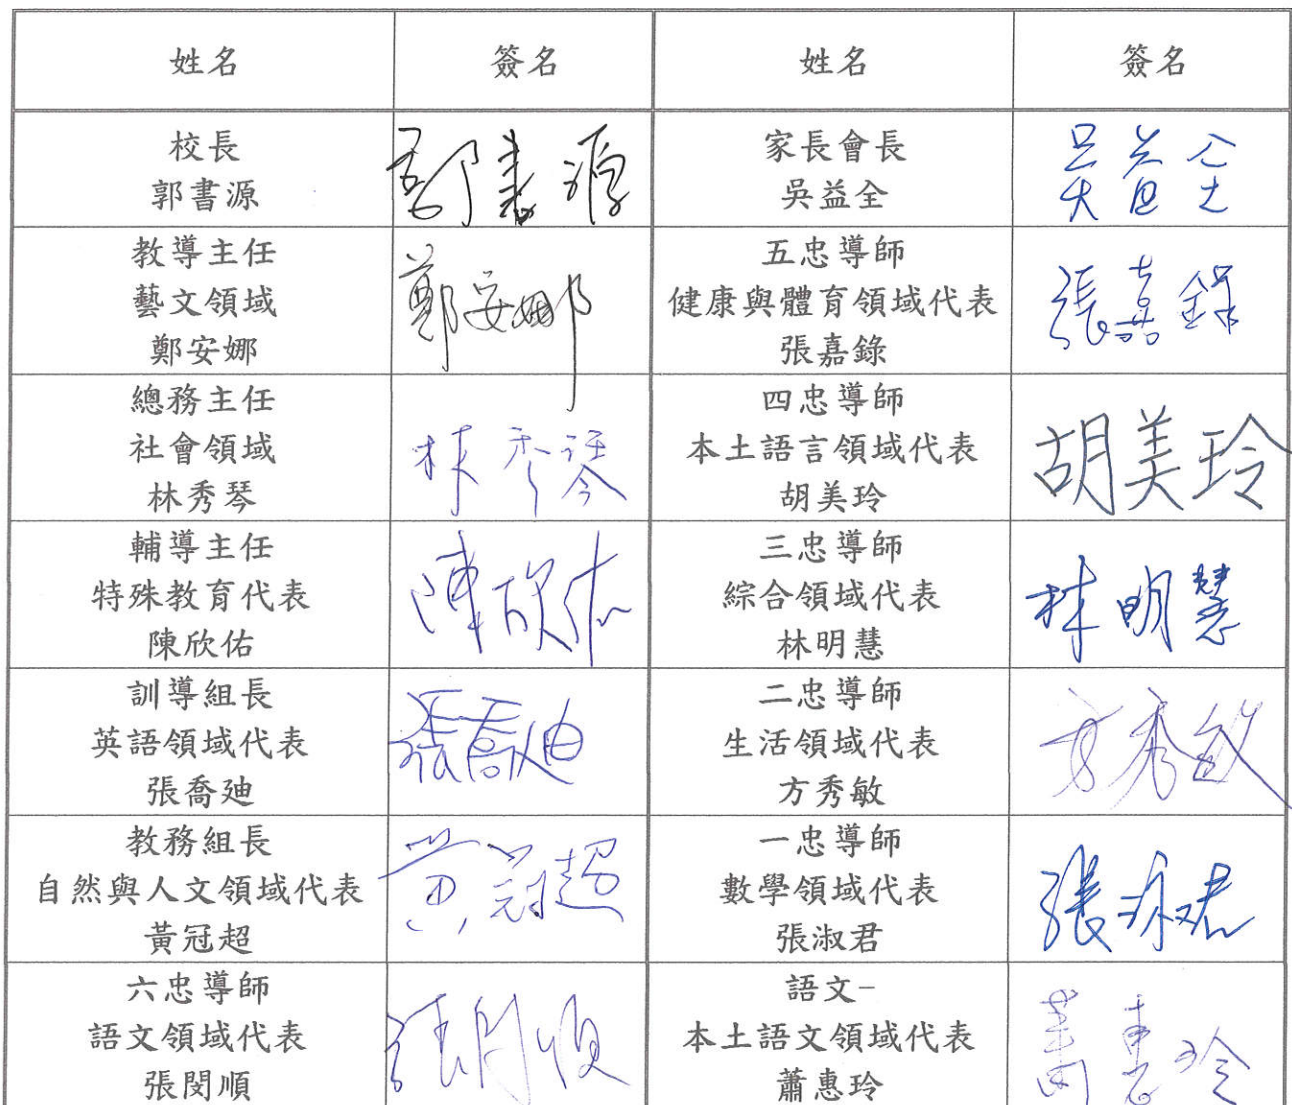 姓名 簽名 姓名 簽名
校長
郭書源
郭書源
家長會長
吳益全
吳益全
教導主任
藝文領域
鄭安娜
鄭安娜
五忠導師
健康與體育領域代表
張嘉錄
張嘉錄
總務主任
社會領域
林秀琴
林秀琴
四忠導師
本土語言領域代表
胡美玲
胡美玲
輔導主任
特殊教育代表
陳欣佑
陳欣佑
三忠導師
綜合領域代表
林明慧
林明慧
訓導組長
英語領域代表
張喬廸
張喬廸
二忠導師
生活領域代表
方秀敏
方秀敏
教務組長
自然與人文領域代表
黃冠超
黃冠超
一忠導師
數學領域代表
張淑君
張淑君
六忠導師
語文領域代表
張閔順
張閔順
語文-
本土語文領域代表
蕭惠玲
蕭惠玲